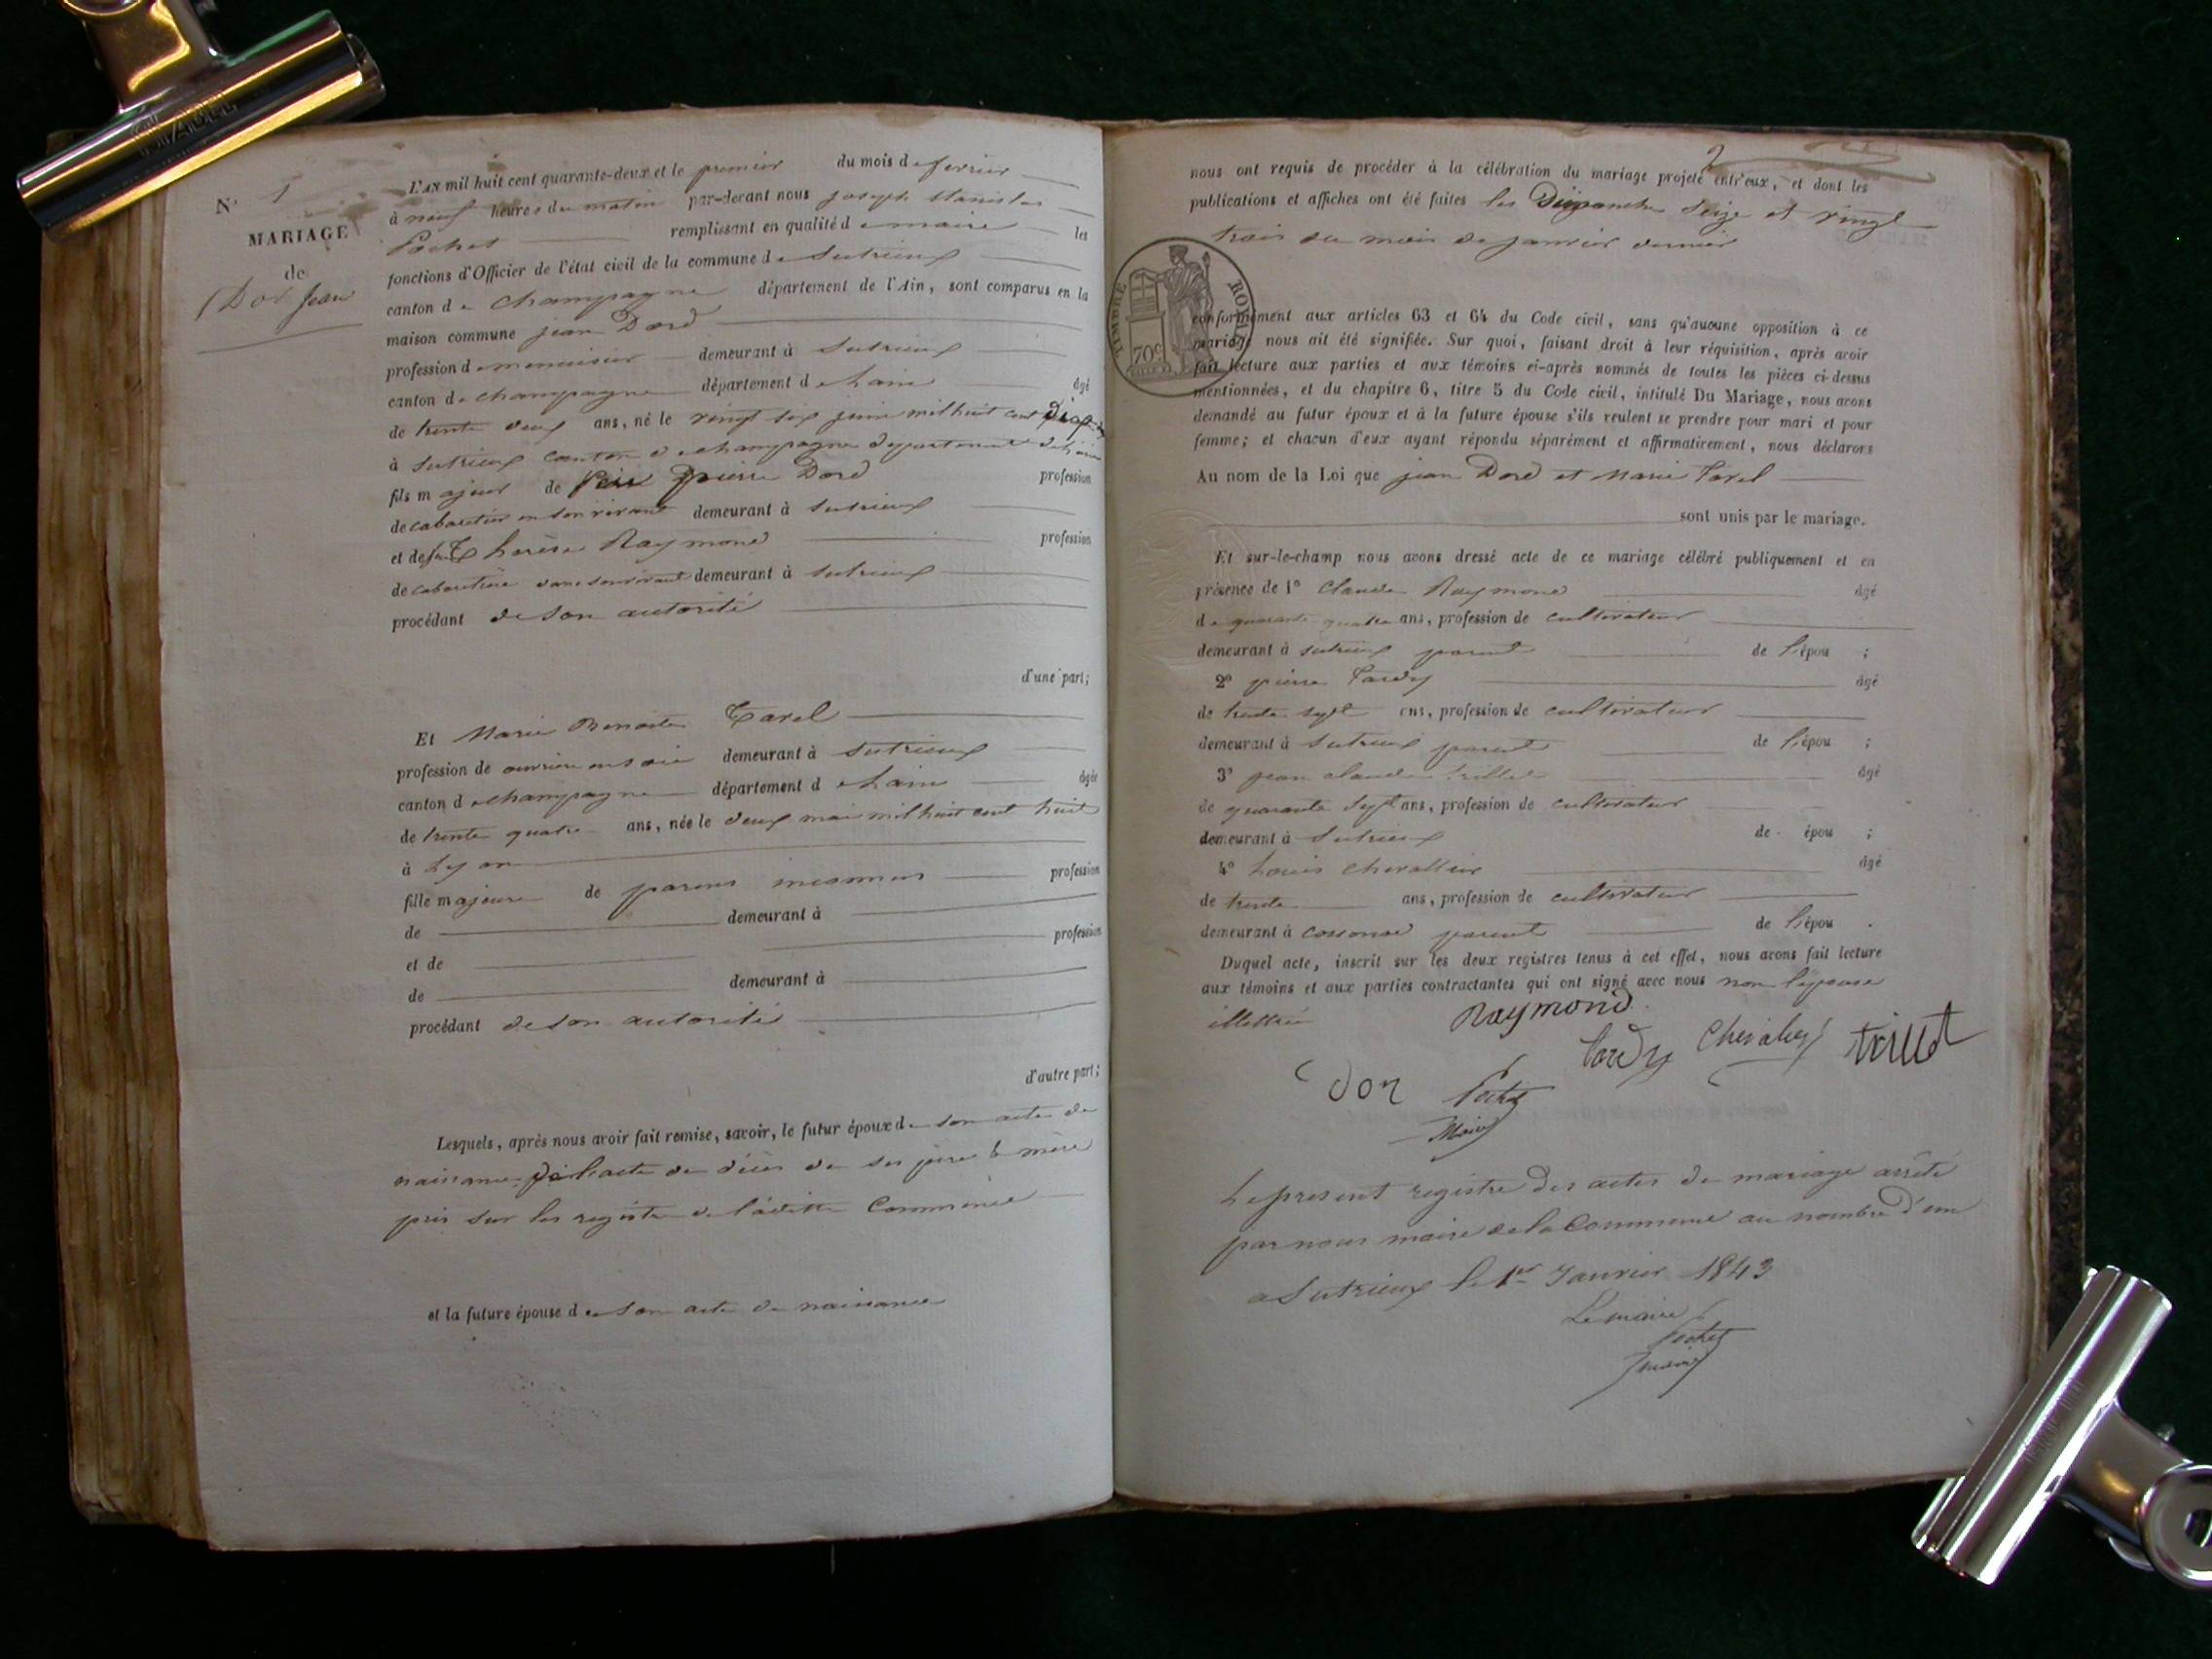 N° 1
MARIAGE
de
Dor Jean
L'AN mil huit cent quarante-deux et le premier du mois de fevrier
à neuf heures du matin par-devant nous joseph stanislas
Pochet remplissant en qualité de maire les
fonctions d'Officier de l'état civil de la commune de Sutrieux
canton de Champagne département de l'Ain, sont comparus en la
maison commune jean Dord
profession de menuisier demeurant à Sutrieux
canton de champagne département de Lain âgé
de trente deux ans, né le vingt six juin mil huit cent
à Sutrieux canton de champagne departement de Lain
fils majeur de pierre Dord profession
de cabaretier en son vivant demeurant à Sutrieux
et de Thérèse Raymond profession
de cabaretière demeurant à Sutrieux
procédant de son autorité
d'une part;
Et Marie Benoite Tarel
profession de ouvrière en soie demeurant à Sutrieux
canton de champagne département de Lain âgée
de trente quatre ans, née le deux mai mil huit cent huit
à Lyon
fille majeure de parens inconnus profession
de demeurant à
et de profession
de demeurant à
procédant de son autorité
d'autre part;
Lesquels, après nous avoir fait remise, savoir, le futur époux de son acte de
naissance de lacte de décès de ses père & mère
pris sur les registre de laditte Commune
et la future épouse de son acte de naissance
2
nous ont requis de procéder à la célébration du mariage projeté entr'eux, et dont les
publications et affiches ont été faites les Dimanches Seize et vingt
trois du mois de janvier dernier
TIMBRE ROYAL
70c
conformément aux articles 63 et 64 du Code civil, sans qu'aucune opposition à ce
mariage nous ait été signifiée. Sur quoi, faisant droit à leur réquisition, après avoir
fait lecture aux parties et aux témoins ci-après nommés de toutes les pièces ci-dessus
mentionnées, et du chapitre 6, titre 5 du Code civil, intitulé Du Mariage, nous avons
demandé au futur époux et à la future épouse s'ils veulent se prendre pour mari et pour
femme; et chacun d'eux ayant répondu séparément et affirmativement, nous déclarons
Au nom de la Loi que jean Dord et Marie Tarel
sont unis par le mariage.
Et sur-le-champ nous avons dressé acte de ce mariage célébré publiquement et en
présence de 1° Claude Raymond âgé
de quarante quatre ans, profession de cultivateur
demeurant à Sutrieux parent de l'épou ;
2° pierre Tardy âgé
de trente sept ans, profession de cultivateur
demeurant à Sutrieux parent de l'épou ;
3° jean claude trillet âgé
de quarante sept ans, profession de cultivateur
demeurant à Sutrieux de épou ;
4° Louis Chevallier âgé
de trente ans, profession de cultivateur
demeurant à cossonod parent de l'épou .
Duquel acte, inscrit sur les deux registres tenus à cet effet, nous avons fait lecture
aux témoins et aux parties contractantes qui ont signé avec nous non l'épouse
illettrée
Raymond
tardy Chevalier trillet
dor Pochet
Maire
Le present registre des actes de mariage arrêté
par nous maire de la Commune au nombre d'un
a Sutrieux le 1er Janvier 1843
Le maire
Pochet
maire